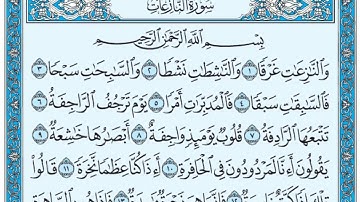 سُورَةُ النَّازِعَاتِ
بِسْمِ اللَّهِ الرَّحْمَٰنِ الرَّحِيمِ
وَالنَّٰزِعَٰتِ غَرْقًا ١ وَالنَّٰشِطَٰتِ نَشْطًا ٢ وَالسَّٰبِحَٰتِ سَبْحًا ٣
فَالسَّٰبِقَٰتِ سَبْقًا ٤ فَالْمُدَبِّرَٰتِ أَمْرًا ٥ يَوْمَ تَرْجُفُ الرَّاجِفَةُ ٦
تَتْبَعُهَا الرَّادِفَةُ ٧ قُلُوبٌ يَوْمَئِذٍ وَاجِفَةٌ ٨ أَبْصَٰرُهَا خَٰشِعَةٌ ٩
يَقُولُونَ أَءِنَّا لَمَرْدُودُونَ فِي الْحَافِرَةِ ١٠ أَءِذَا كُنَّا عِظَٰمًا نَّخِرَةً ١١ قَالُوا